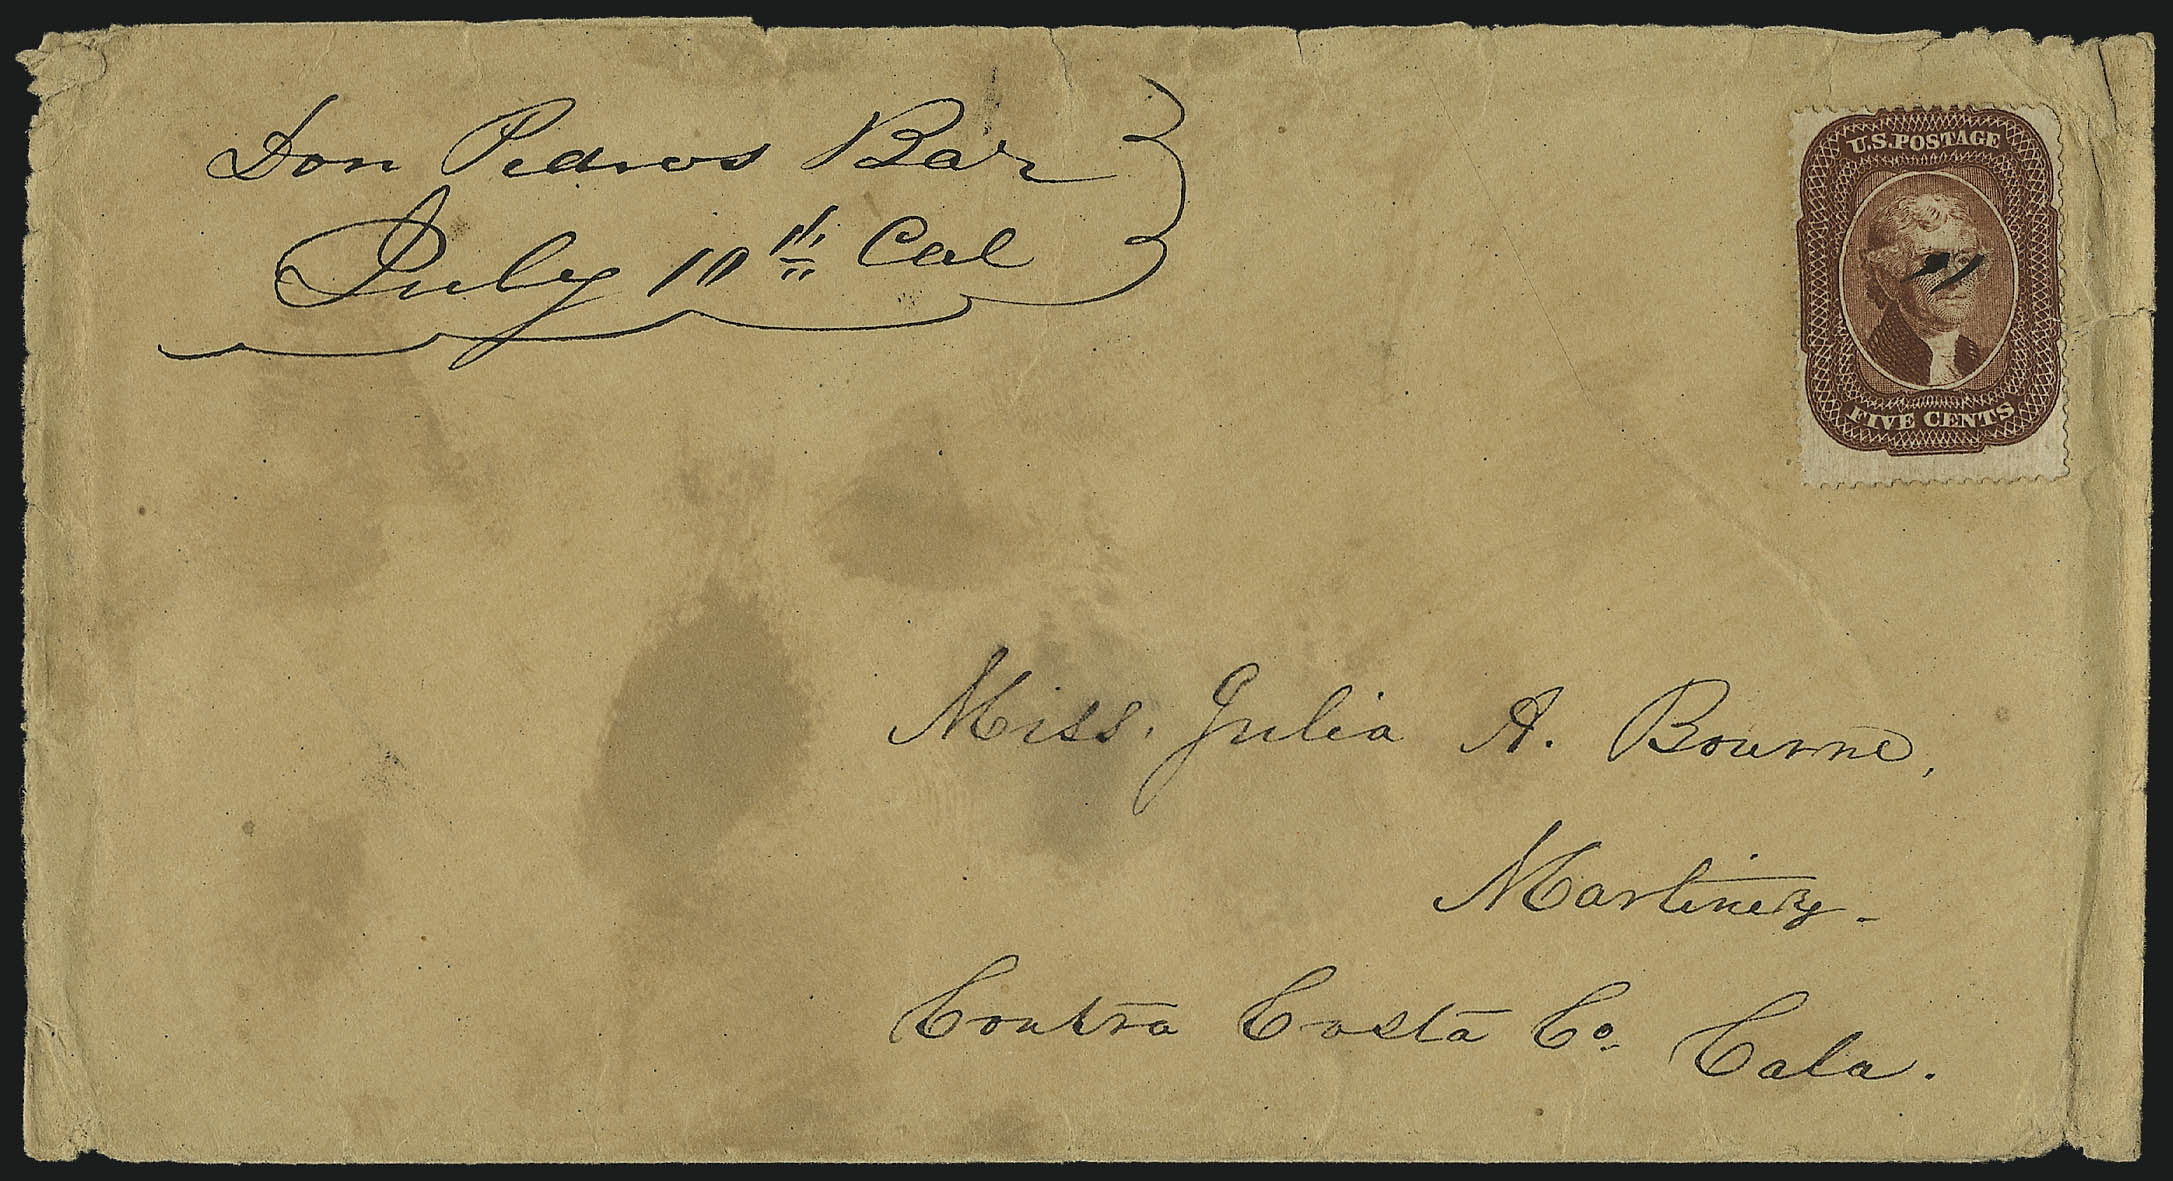 Don Pedros Bar
July 10th Cal
U.S. POSTAGE
FIVE CENTS
Miss. Julia A. Bourne,
Martinez-
Contra Costa Co. Cala.